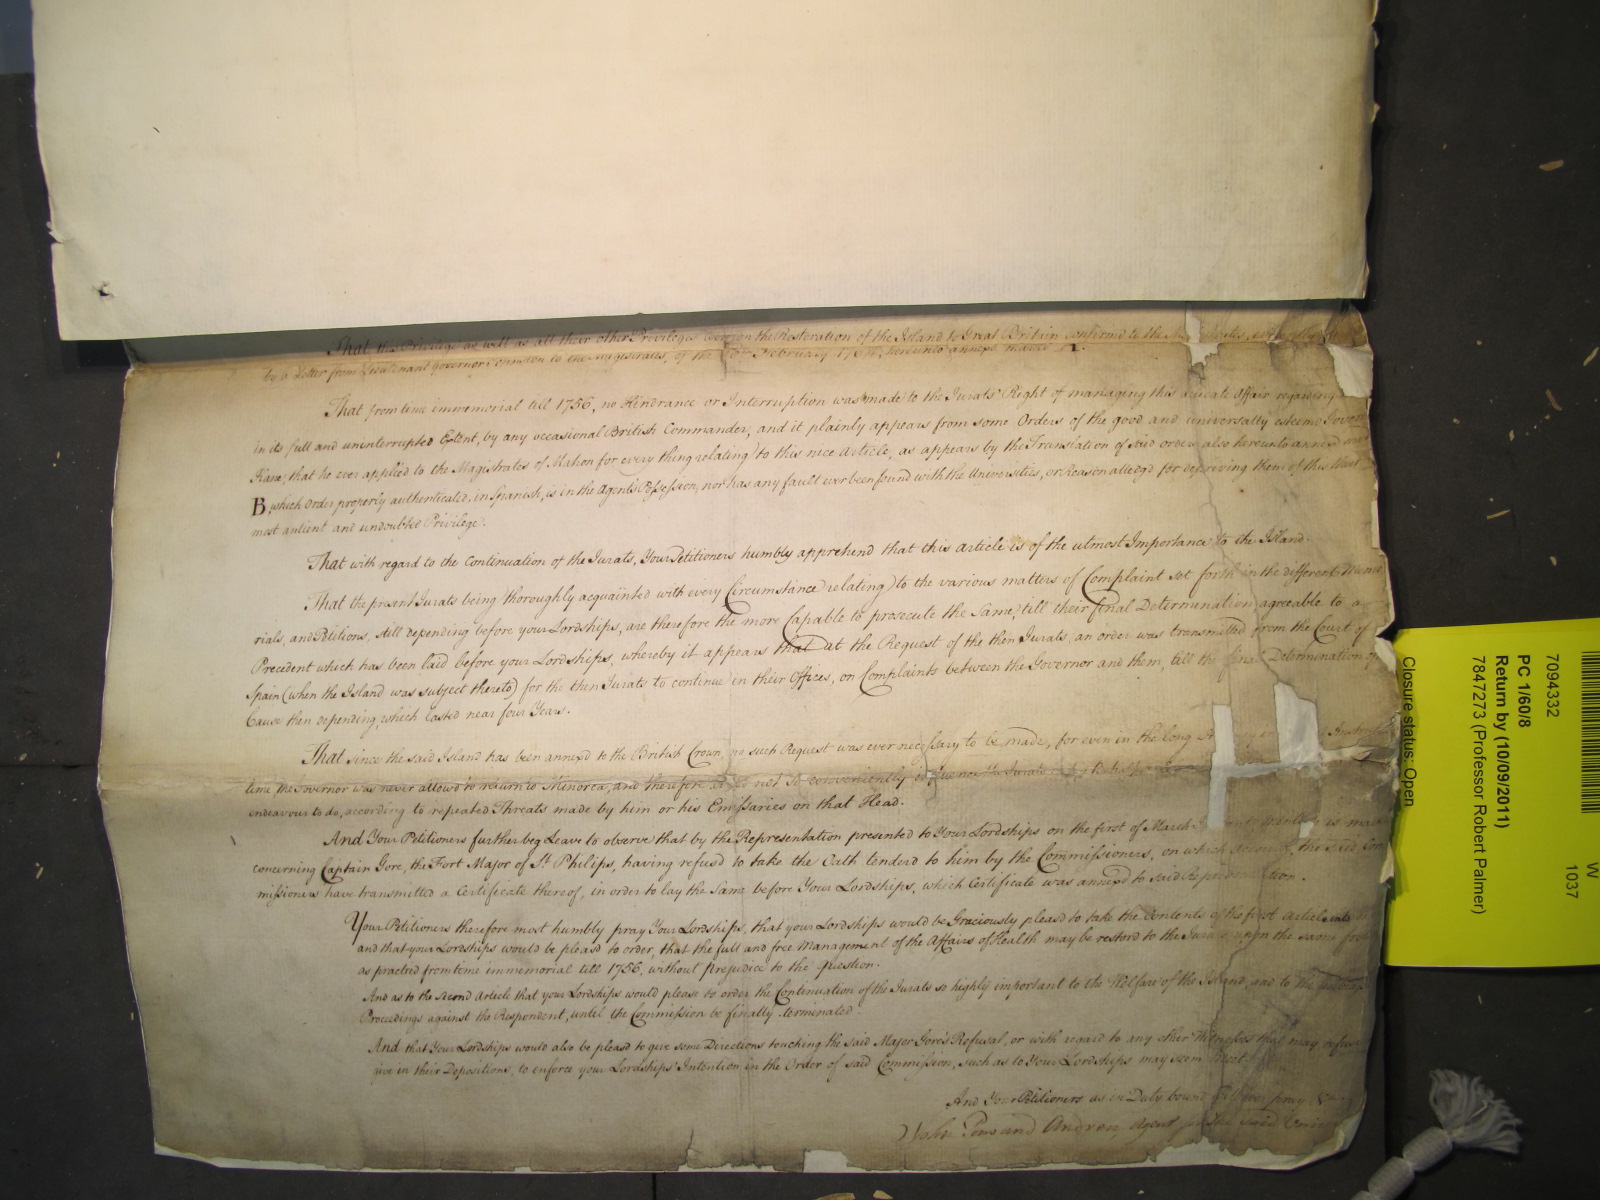 That this Privilege as well as all their other Privileges were on the Restoration of the Island to Great Britain confirmed to the
by a Letter from Lieutenant Governor to the Magistrates, of the February hereunto annext markt A.
That from time immemorial till 1756, no Hindrance or Interruption was made to the Jurats' Right of managing this Affair regarding
in its full and uninterrupted Extent, by any occasional British Commander, and it plainly appears from some Orders of the good and universally esteem'd
Kane, that he ever applied to the Magistrates of Mahon for every thing relating to this nice Article, as appears by the Translation of said order also hereunto annexd
B, which Order properly authenticated, in Spanish, is in the Agent's Possession, nor has any fault ever been found with the Universities, or Reason alledg'd for depriving them of this
most antient and undoubted Privilege.
That with regard to the Continuation of the Jurats, Your Petitioners humbly apprehend that this Article is of the utmost Importance to the Island.
That the present Jurats being thoroughly acquainted with every Circumstance relating to the various matters of Complaint set forth in the different Memo
rials, and Petitions, still depending before your Lordships, are therefore the more Capable to prosecute the Same, till their final Determination agreeable to a
Precedent which has been laid before your Lordships, whereby it appears that at the Request of the then Jurats, an order was transmitted from the Court of
Spain (when the Island was subject thereto) for the then Jurats to continue in their Offices, on Complaints between the Governor and them, till the final Determination of
Cause then depending, which lasted near four Years.
That since the said Island has been annexd to the British Crown, no such Request was ever necessary to be made, for even in the long
time the Governor was never allowd to return to Minorca, and therefore not so conveniently
endeavour to do, according to repeated Threats made by him or his Emissaries on that Head.
And Your Petitioners further beg Leave to observe that by the Representation presented to Your Lordships on the first of March is
concerning Captain Gore, the Fort Major of St. Philips, having refus'd to take the Oath tenderd to him by the Commissioners, on which the said Com
missioners have transmitted a Certificate thereof, in order to lay the Same before Your Lordships, which Certificate was annexd to said Representation.
Your Petitioners therefore most humbly pray Your Lordships, that your Lordships would be Graciously pleasd to take the Contents of the first Article into
and that your Lordships would be pleasd to order, that the full and free Management of the Affairs of Health may be restord to the Jurats upon the same
as practced from time immemorial till 1756, without prejudice to the Question.
And as to the Second Article that your Lordships would please to order the Continuation of the Jurats so highly important to the Welfare of the Island, and to the
Proceedings against the Respondent, until the Commission be finally terminated.
And that Your Lordships would also be pleasd to give some Directions touching the said Major Gore's Refusal, or with regard to any other Witnesses that may refuse
give in their Depositions, to enforce your Lordships' Intention in the Order of said Commission, such as to Your Lordships may seem meet.
And Your Petitioners as in Duty bound shall ever pray &c.
John Pons and Andreu, Agent for the said
7094332
PC 1/60/8
Return by (10/09/2011)
7847273 (Professor Robert Palmer)
Closure status: Open
W
1037